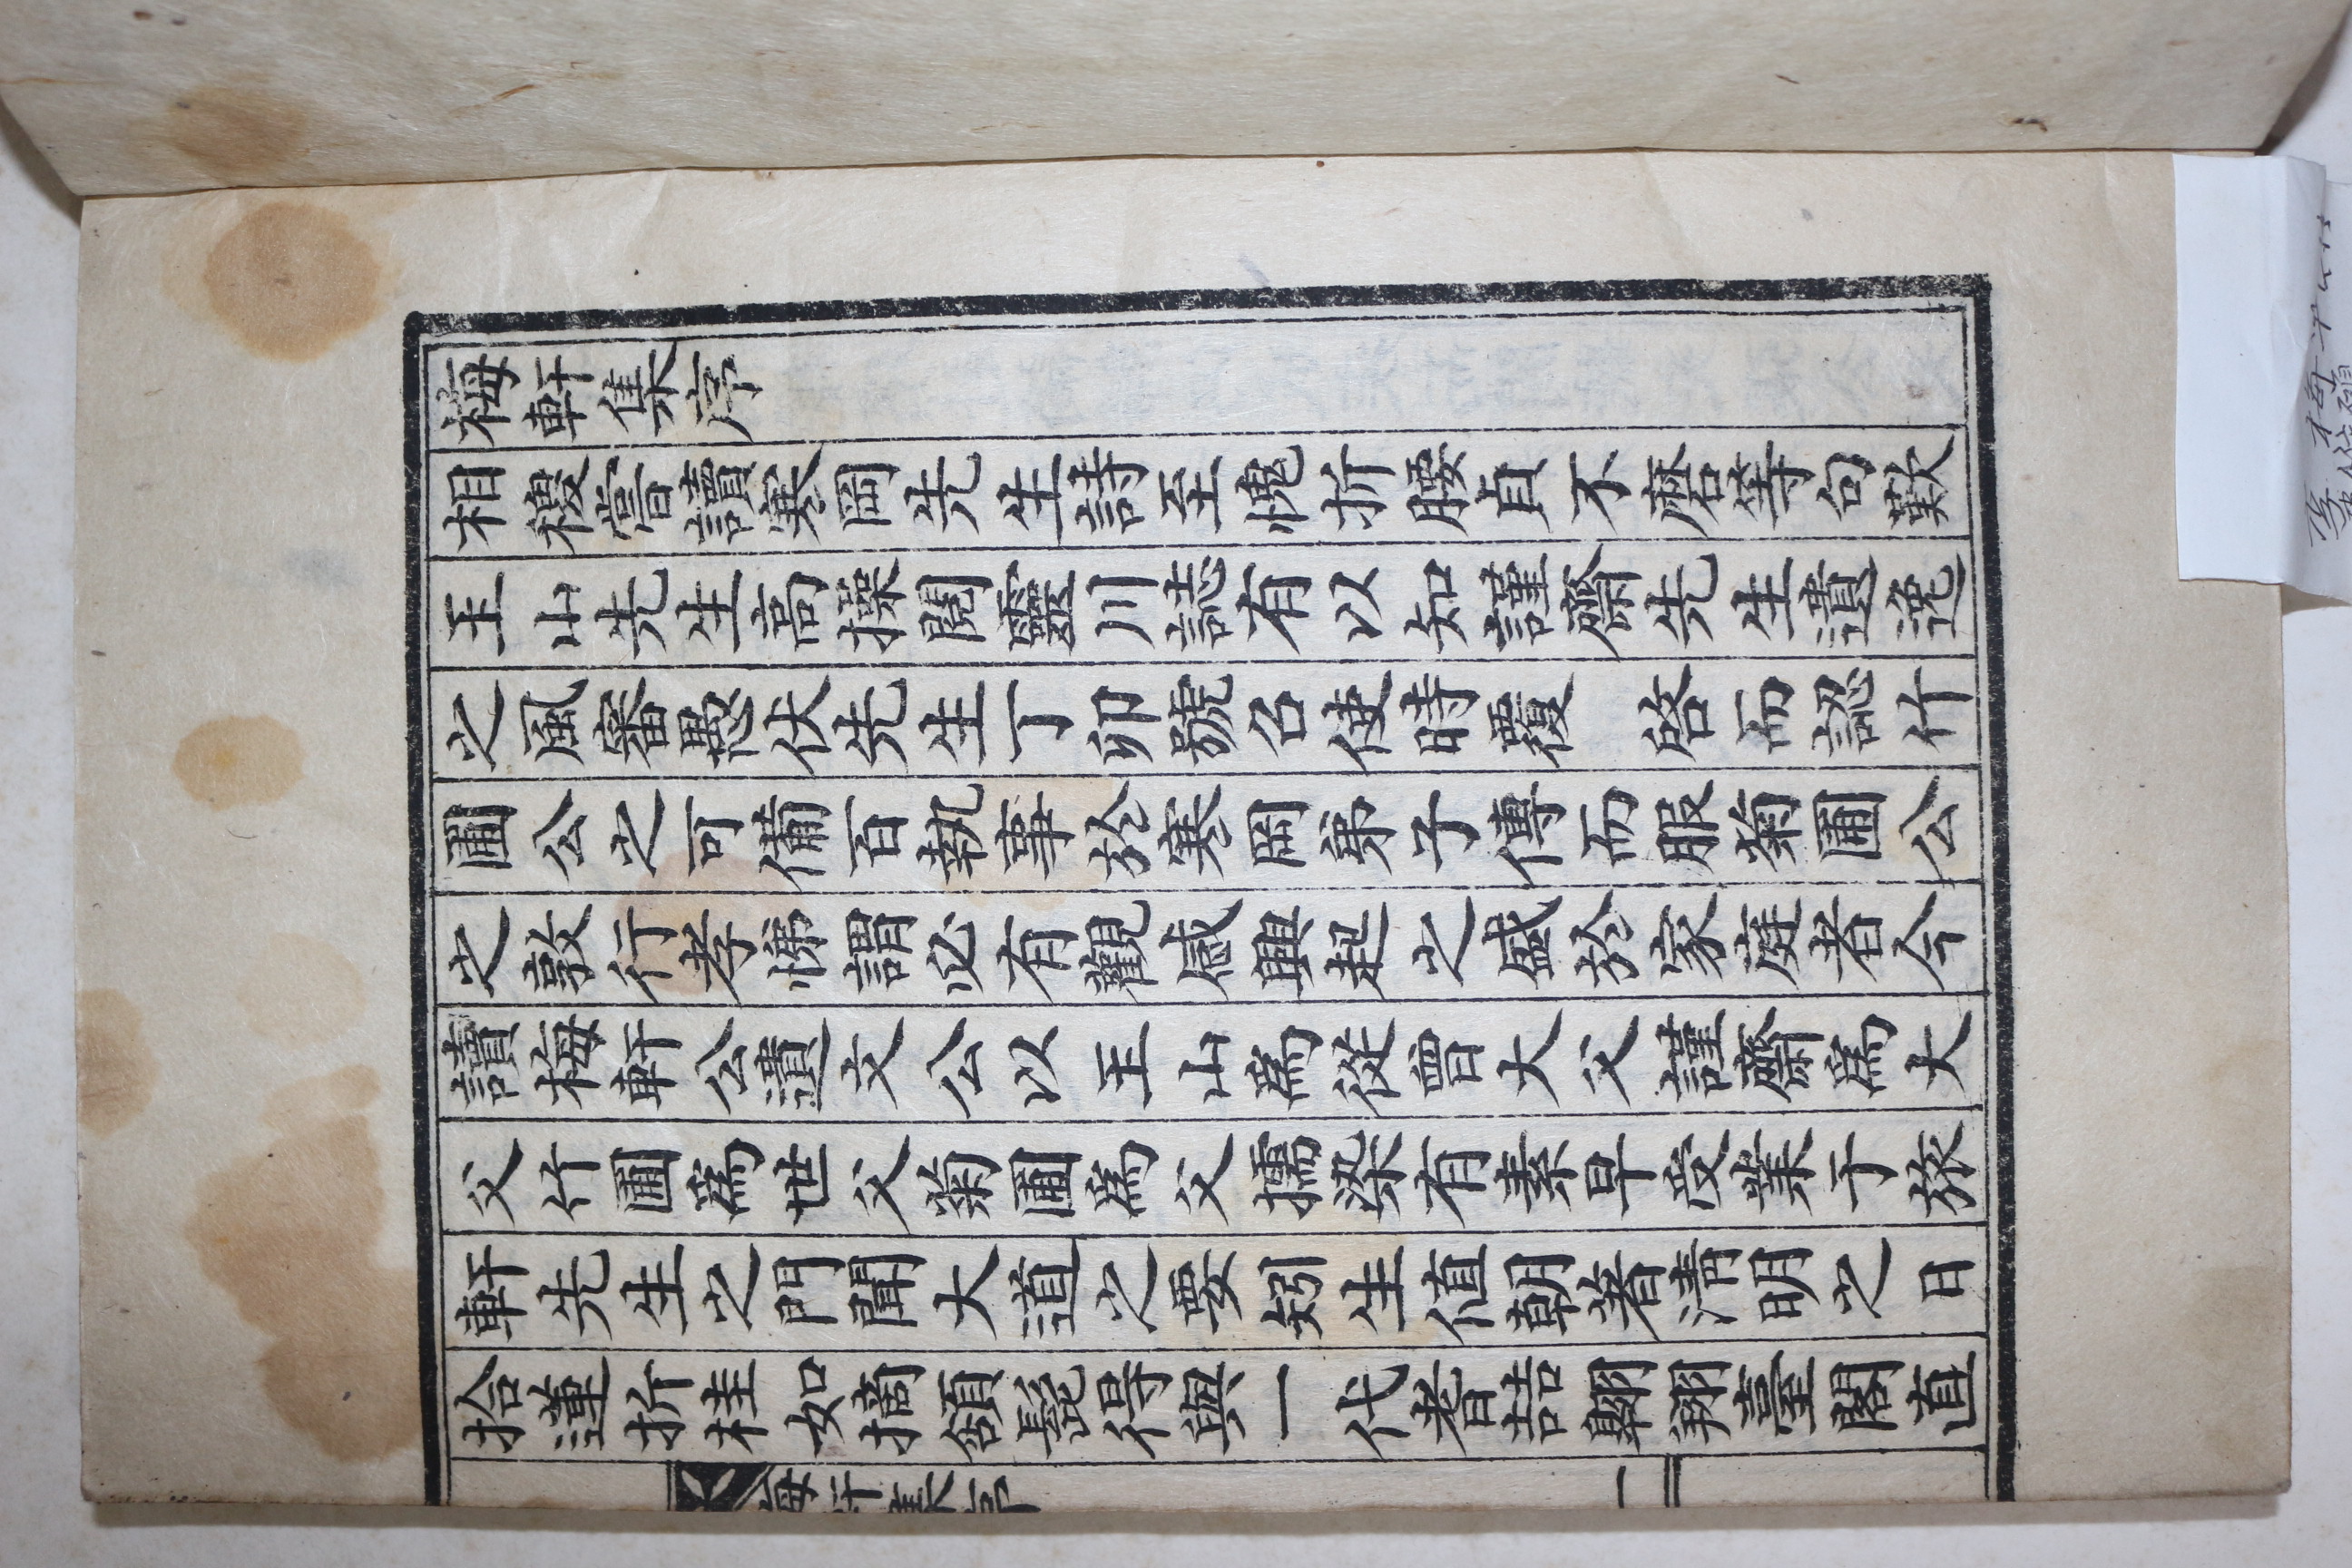 梅軒集序
相稷嘗讀寒岡先生詩至愧折腰貞不磨等句歎
玉山先生高操閱靈川誌有以知謹齋先生遺逸
之風審愚伏先生丁卯號召使時覆　啓而認竹
圃公之可備百執事於寒岡弟子傳而服菊圃公
之敦行孝悌謂必有觀感興起之盛於家庭者今
讀梅軒公遺文公以玉山爲從曾大父謹齋爲大
父竹圃爲世父菊圃爲父擩染有素早受業于旅
軒先生之門聞大道之要矧生値朝著淸明之日
拾蓮折桂如摘頷髭得與一代耆喆翺翔臺閣直
梅軒集序
一